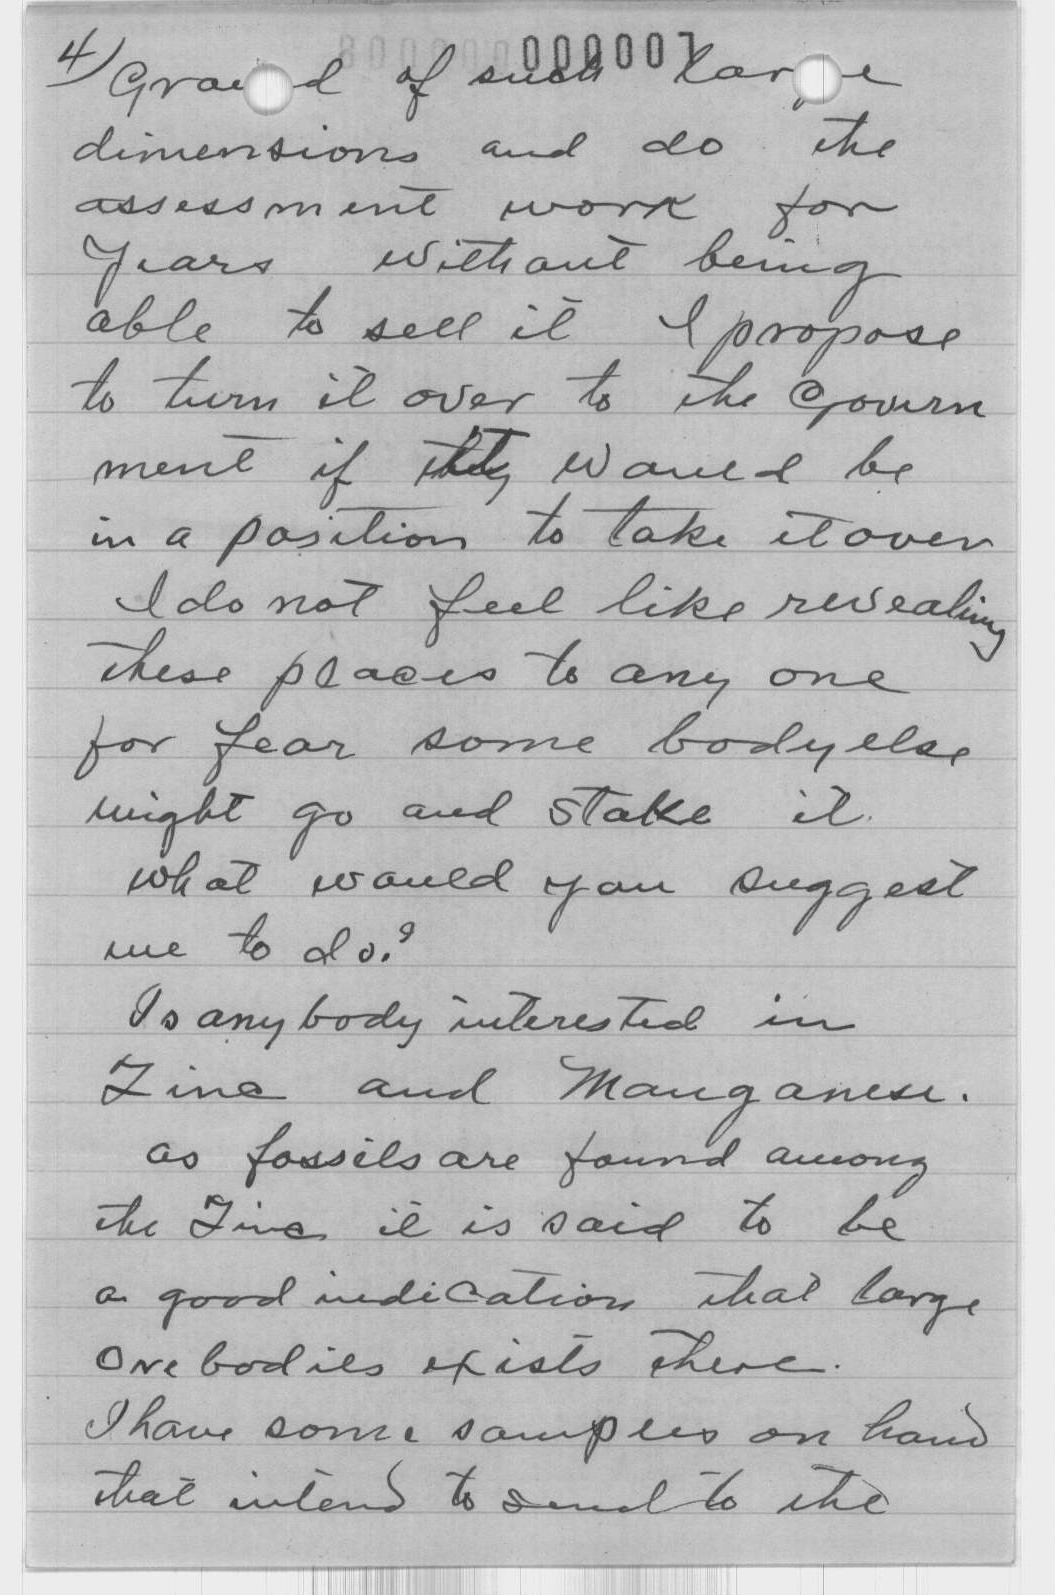 4) 000007
Ground of such large
dimensions and do the
assessment work for
Years without being
able to sell it I propose
to turn it over to the Govern
ment if they would be
in a position to take it over
I do not feel like revealing
these places to any one
for fear some body else
might go and stake it.
what would you suggest
me to do?
Is anybody interested in
Zinc and Manganese.
as fossils are found among
the Zinc it is said to be
a good indication that large
Ore bodies exists there.
I have some samples on hand
that intend to send to the